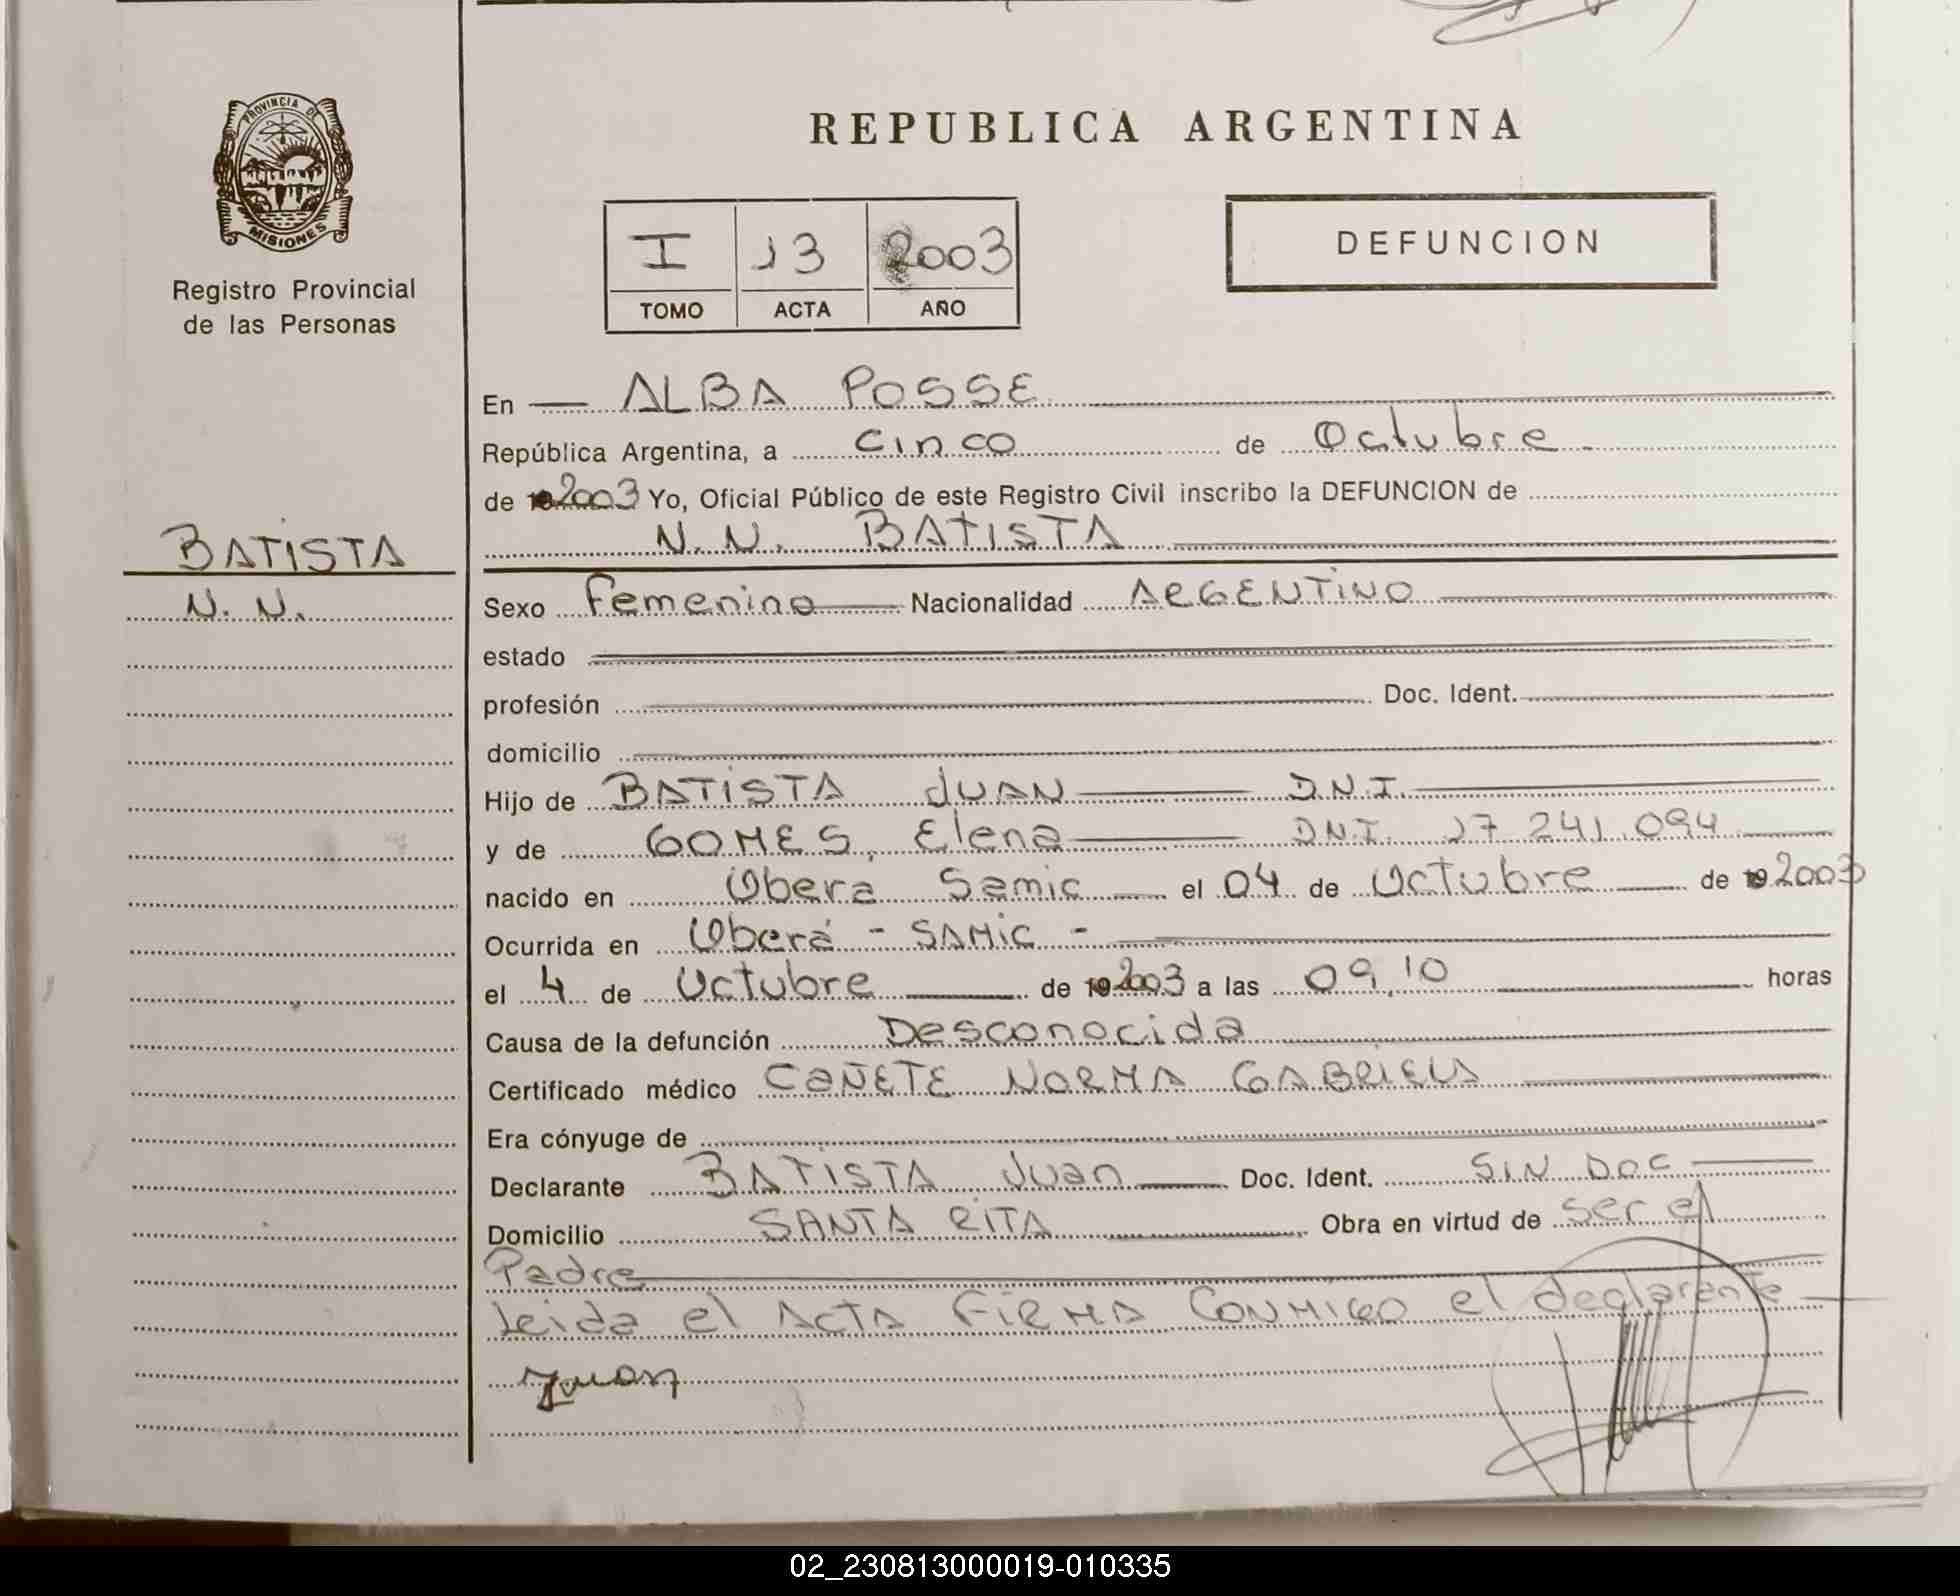 PROVINCIA DE
MISIONES
Registro Provincial
de las Personas
REPUBLICA ARGENTINA
I 13 2003
TOMO ACTA AÑO
DEFUNCION
En ALBA POSSE
República Argentina, a cinco de Octubre
de 2003 Yo, Oficial Público de este Registro Civil inscribo la DEFUNCION de
N. N. BATISTA
BATISTA
N. N.
Sexo Femenino Nacionalidad ARGENTINO
estado
profesión Doc. Ident.
domicilio
Hijo de BATISTA JUAN D.N.I.
y de GOMES, Elena D.N.I. 17 241.094
nacido en Obera Samic el 04 de Octubre de 192003
Ocurrida en Oberá - SAMIC -
el 4 de Octubre de 192003 a las 09,10 horas
Causa de la defunción Desconocida
Certificado médico CAÑETE NORMA GABRIELA
Era cónyuge de
Declarante BATISTA Juan Doc. Ident. SIN DOC
Domicilio SANTA RITA Obra en virtud de ser el
Padre
Leida el ACTA FIRMA CONMIGO el declarante
Juan
02_230813000019-010335